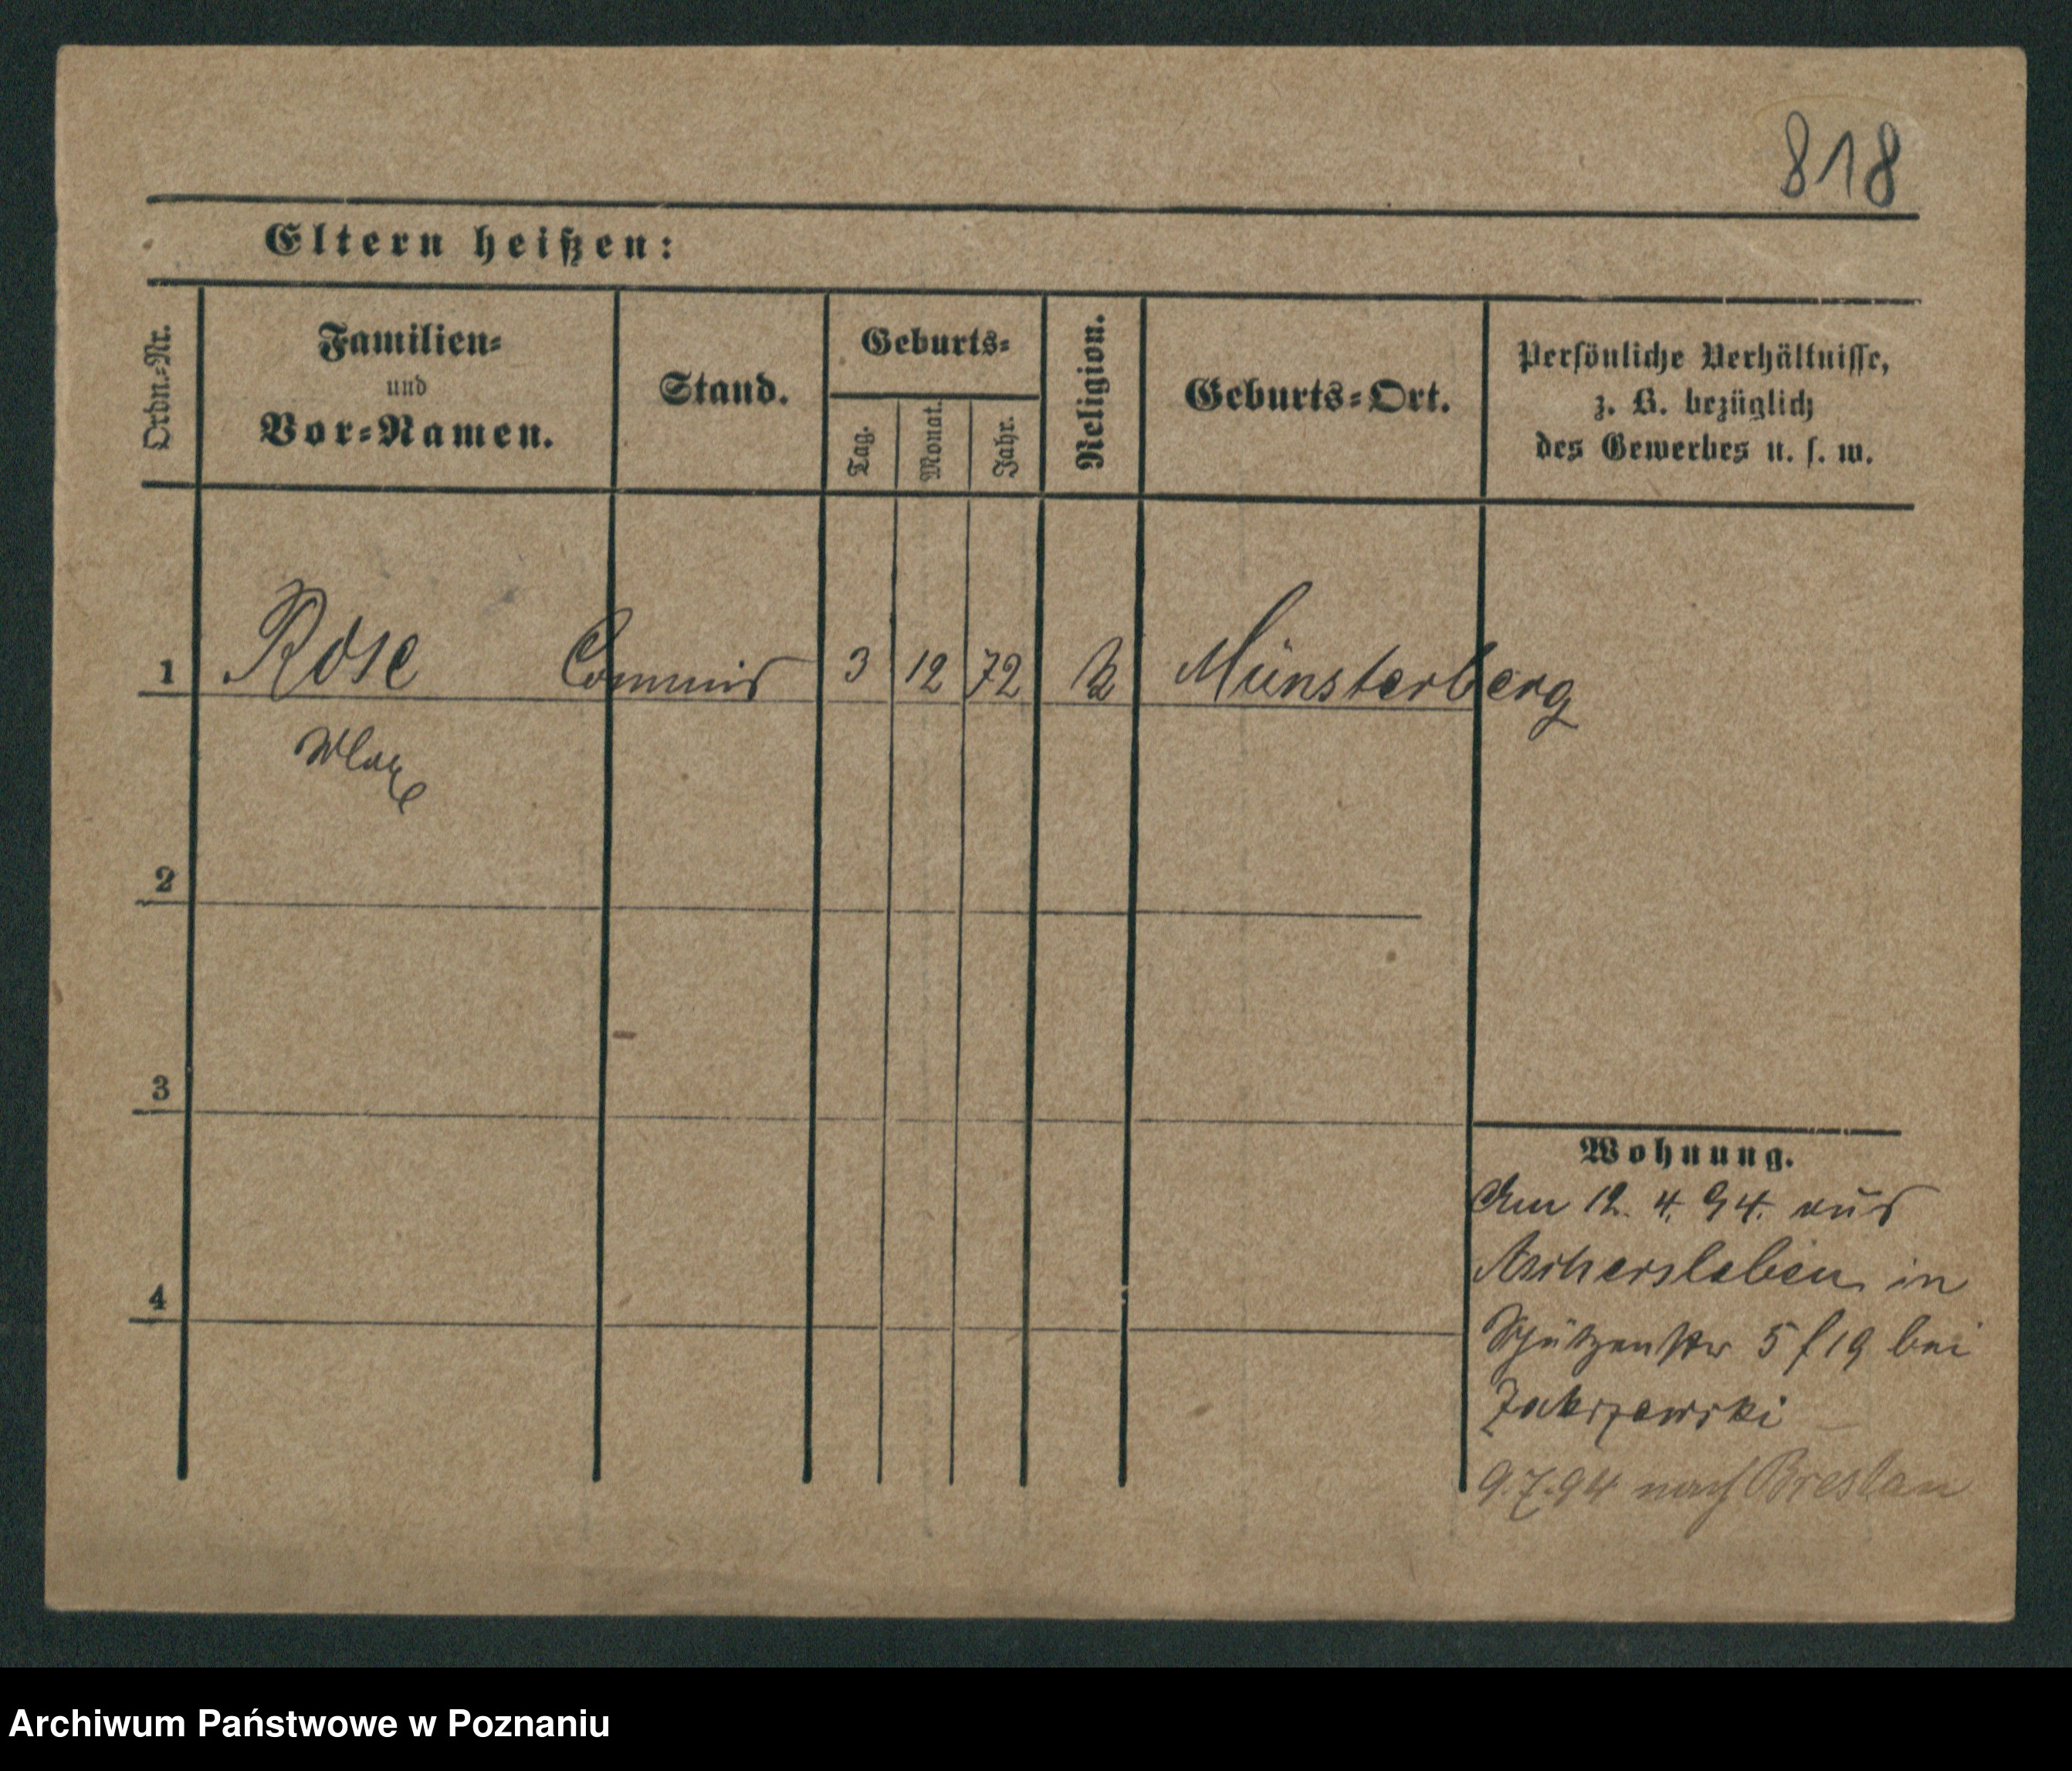 818
Eltern heißen:
Ordn.-Nr.
Familien-
und
Vor-Namen.
Stand.
Geburts-
Tag.
Monat.
Jahr.
Religion.
Geburts-Ort.
Persönliche Verhältnisse,
z. B. bezüglich
des Gewerbes u. s. w.
1 Rose Commis 3 12 72 Münsterberg
Max
2
3
4
Wohnung.
Am 12. 4. 94. aus
Aschersleben in
Schützenstr 5 f 19 bei
Zakrzewski
9.7.94 nach Breslau
Archiwum Państwowe w Poznaniu